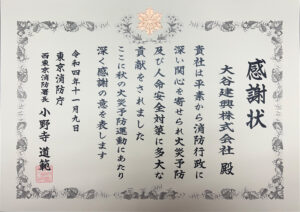 感謝状
大谷建興株式会社 殿
貴社は平素から消防行政に
深い関心を寄せられ火災予防
及び人命安全対策に多大な
貢献をされました
ここに秋の火災予防運動にあたり
深く感謝の意を表します
令和四年十一月九日
東京消防庁
西東京消防署長 小野寺道範